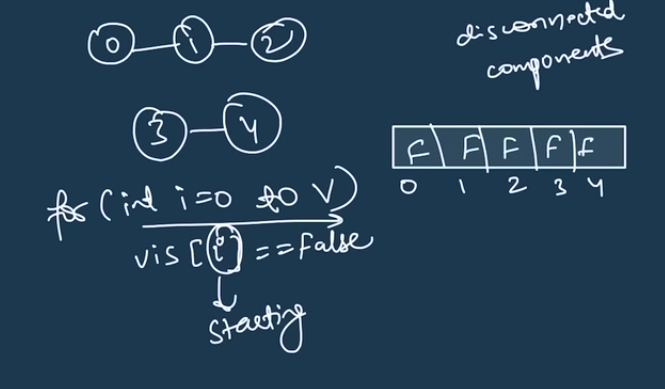 disconnected
components
0 1 2
3 4
F F F F F
0 1 2 3 4
for (int i=0 to V)
vis [i] == False
Starting